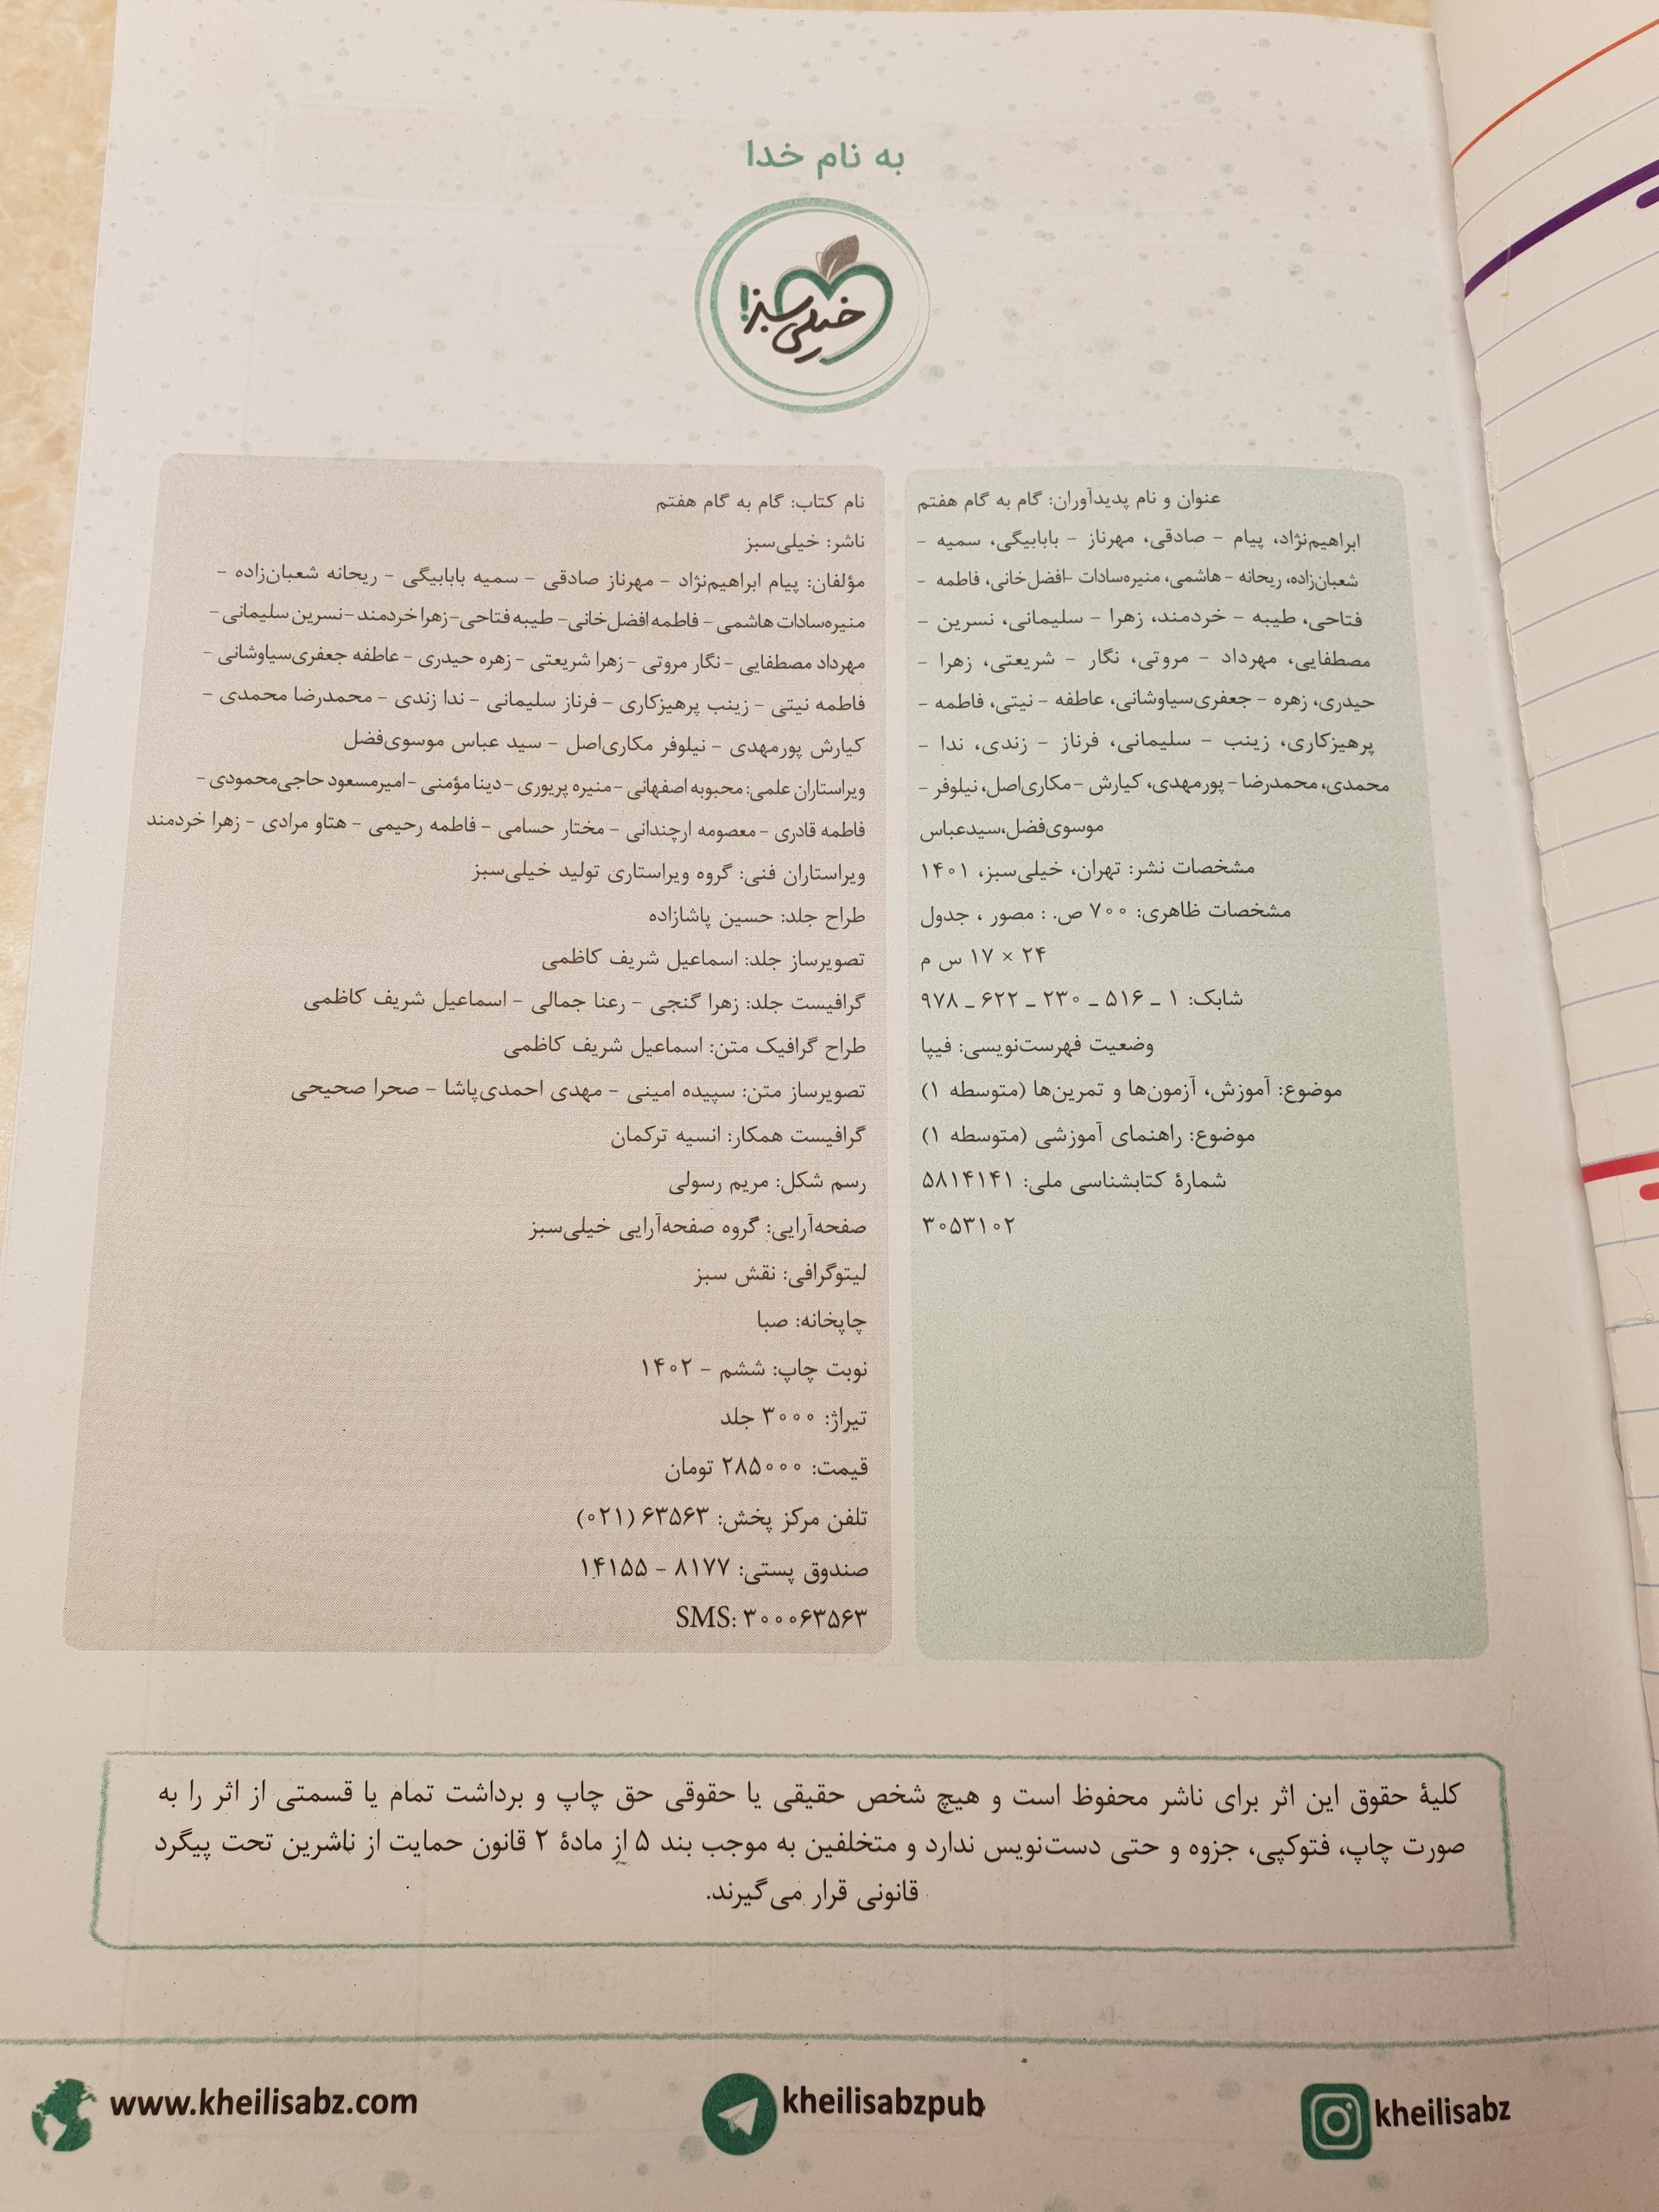 به نام خدا
خیلی سبز!
عنوان و نام پدیدآوران: گام به گام هفتم
ابراهیم‌نژاد، پیام – صادقی، مهرناز – بابابیگی، سمیه –
شعبان‌زاده، ریحانه – هاشمی، منیره‌سادات – افضل‌خانی، فاطمه –
فتاحی، طیبه – خردمند، زهرا – سلیمانی، نسرین –
مصطفایی، مهرداد – مروتی، نگار – شریعتی، زهرا –
حیدری، زهره – جعفری‌سیاوشانی، عاطفه – نیتی، فاطمه –
پرهیزکاری، زینب – سلیمانی، فرناز – زندی، ندا –
محمدی، محمدرضا – پورمهدی، کیارش – مکاری‌اصل، نیلوفر –
موسوی‌فضل،سیدعباس
مشخصات نشر: تهران، خیلی‌سبز، ۱۴۰۱
مشخصات ظاهری: ۷۰۰ ص. : مصور ، جدول
۲۴ × ۱۷ س م
شابک: ۱ ـ ۵۱۶ ـ ۲۳۰ ـ ۶۲۲ ـ ۹۷۸
وضعیت فهرست‌نویسی: فیپا
موضوع: آموزش، آزمون‌ها و تمرین‌ها (متوسطه ۱)
موضوع: راهنمای آموزشی (متوسطه ۱)
شمارۀ کتابشناسی ملی: ۵۸۱۴۱۴۱
۳۰۵۳۱۰۲
نام کتاب: گام به گام هفتم
ناشر: خیلی‌سبز
مؤلفان: پیام ابراهیم‌نژاد – مهرناز صادقی – سمیه بابابیگی – ریحانه شعبان‌زاده –
منیره‌سادات هاشمی – فاطمه افضل‌خانی – طیبه فتاحی – زهرا خردمند – نسرین سلیمانی –
مهرداد مصطفایی – نگار مروتی – زهرا شریعتی – زهره حیدری – عاطفه جعفری‌سیاوشانی –
فاطمه نیتی – زینب پرهیزکاری – فرناز سلیمانی – ندا زندی – محمدرضا محمدی –
کیارش پورمهدی – نیلوفر مکاری‌اصل – سید عباس موسوی‌فضل
ویراستاران علمی: محبوبه اصفهانی – منیره پریوری – دینا مؤمنی – امیرمسعود حاجی‌محمودی –
فاطمه قادری – معصومه ارچندانی – مختار حسامی – فاطمه رحیمی – هتاو مرادی – زهرا خردمند
ویراستاران فنی: گروه ویراستاری تولید خیلی‌سبز
طراح جلد: حسین پاشازاده
تصویرساز جلد: اسماعیل شریف کاظمی
گرافیست جلد: زهرا گنجی – رعنا جمالی – اسماعیل شریف کاظمی
طراح گرافیک متن: اسماعیل شریف کاظمی
تصویرساز متن: سپیده امینی – مهدی احمدی‌پاشا – صحرا صحیحی
گرافیست همکار: انسیه ترکمان
رسم شکل: مریم رسولی
صفحه‌آرایی: گروه صفحه‌آرایی خیلی‌سبز
لیتوگرافی: نقش سبز
چاپخانه: صبا
نوبت چاپ: ششم – ۱۴۰۲
تیراژ: ۳۰۰۰ جلد
قیمت: ۲۸۵۰۰۰ تومان
تلفن مرکز پخش: ۶۳۵۶۳ (۰۲۱)
صندوق پستی: ۸۱۷۷ – ۱۴۱۵۵
SMS: ۳۰۰۰۶۳۵۶۳
کلیۀ حقوق این اثر برای ناشر محفوظ است و هیچ شخص حقیقی یا حقوقی حق چاپ و برداشت تمام یا قسمتی از اثر را به
صورت چاپ، فتوکپی، جزوه و حتی دست‌نویس ندارد و متخلفین به موجب بند ۵ از مادۀ ۲ قانون حمایت از ناشرین تحت پیگرد
قانونی قرار می‌گیرند.
www.kheilisabz.com
kheilisabzpub
kheilisabz